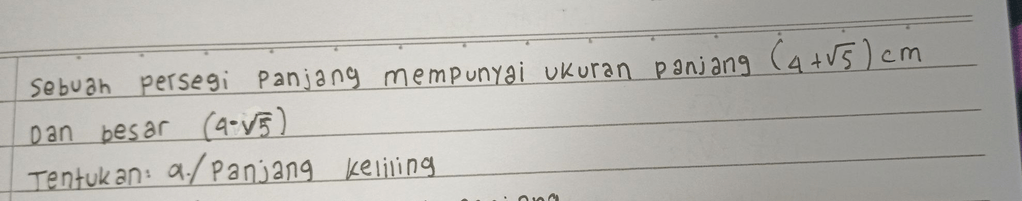 Sebuah persegi panjang mempunyai ukuran panjang (4+√5) cm
Dan besar (4-√5)
Tentukan: a./ Panjang keliling